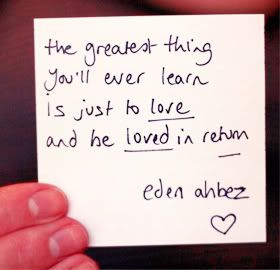 the greatest thing
you'll ever learn
is just to love
and be loved in return
eden ahbez